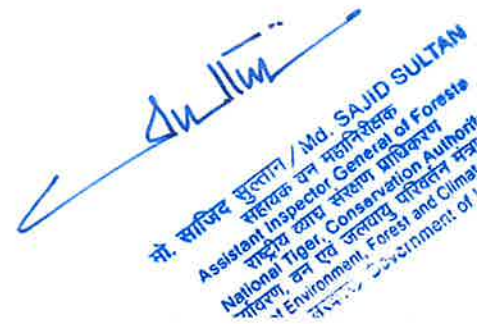 मो. साजिद सुल्तान / Md. SAJID SULTAN
सहायक वन महानिरीक्षक
Assistant Inspector General of Forests
राष्ट्रीय व्याघ्र संरक्षण प्राधिकरण
National Tiger Conservation Authorit
र्यावरण, वन एवं जलवायु परिवर्तन मंत्रा
of Environment, Forest and Climat
Government of